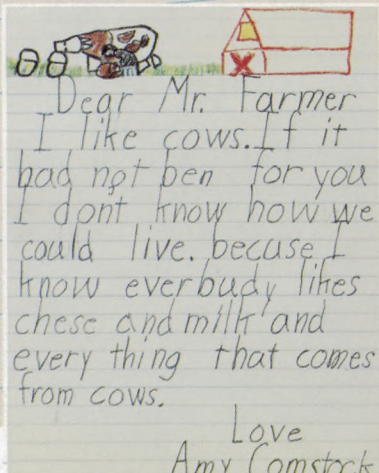 Dear Mr. Farmer
I like cows. If it
had not ben for you
I dont know how we
could live. becuse I
know everbudy likes
chese and milk and
every thing that comes
from cows.
Love
Amy Comstock